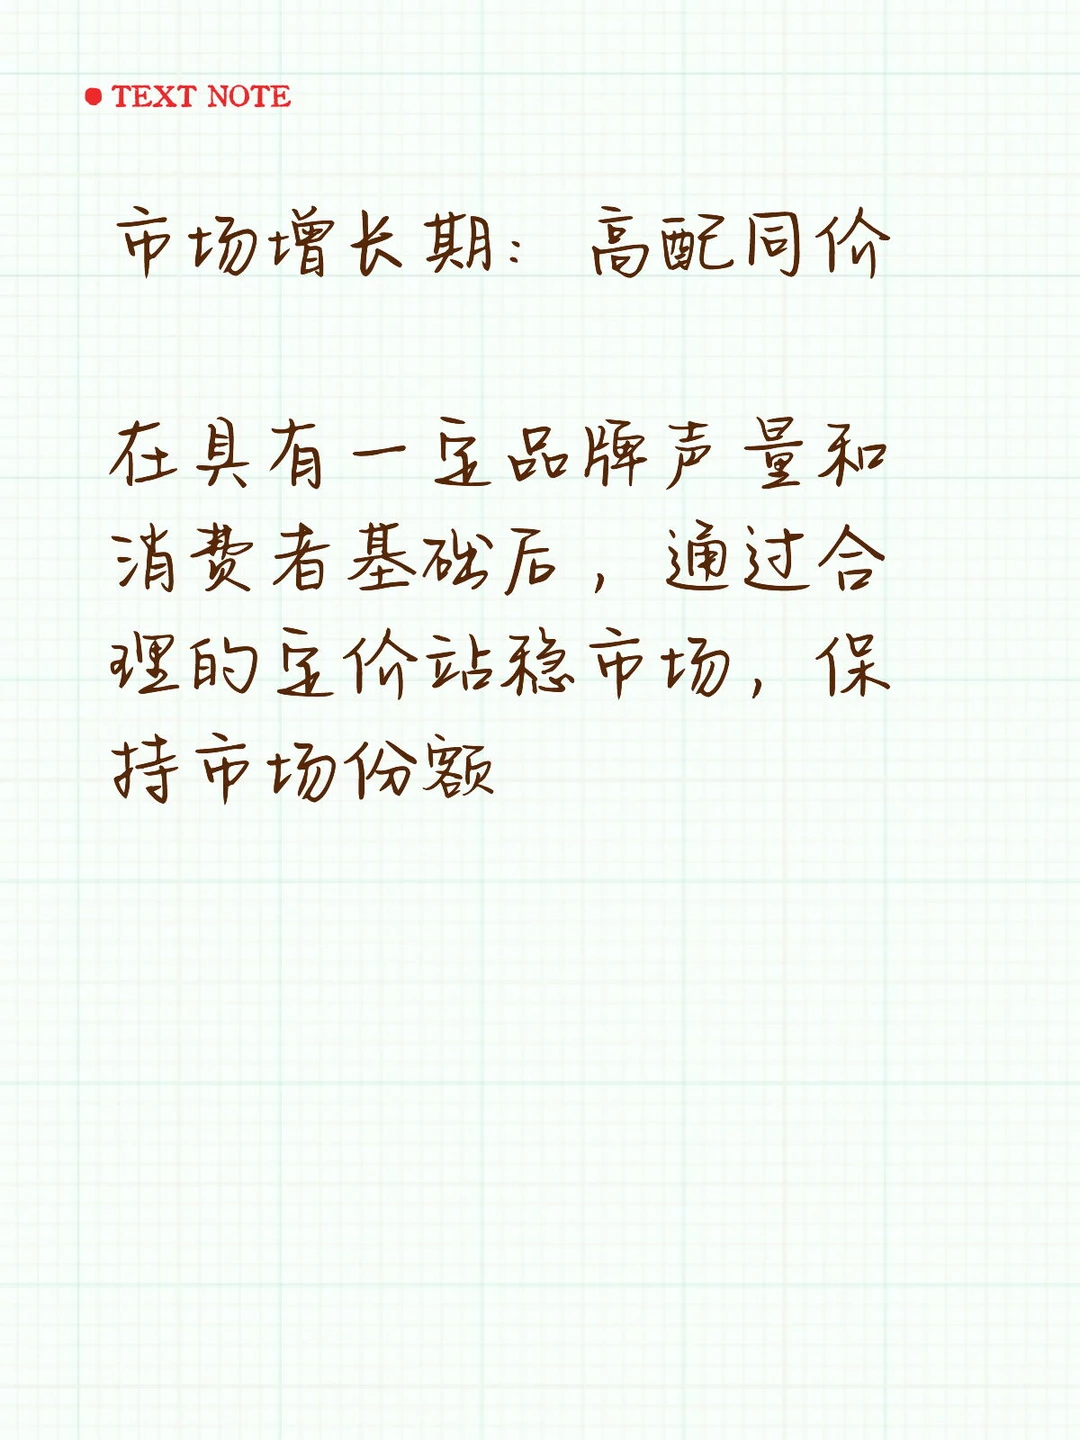 TEXT NOTE
市场增长期：高配同价
在具有一定品牌声量和
消费者基础后，通过合
理的定价站稳市场，保
持市场份额